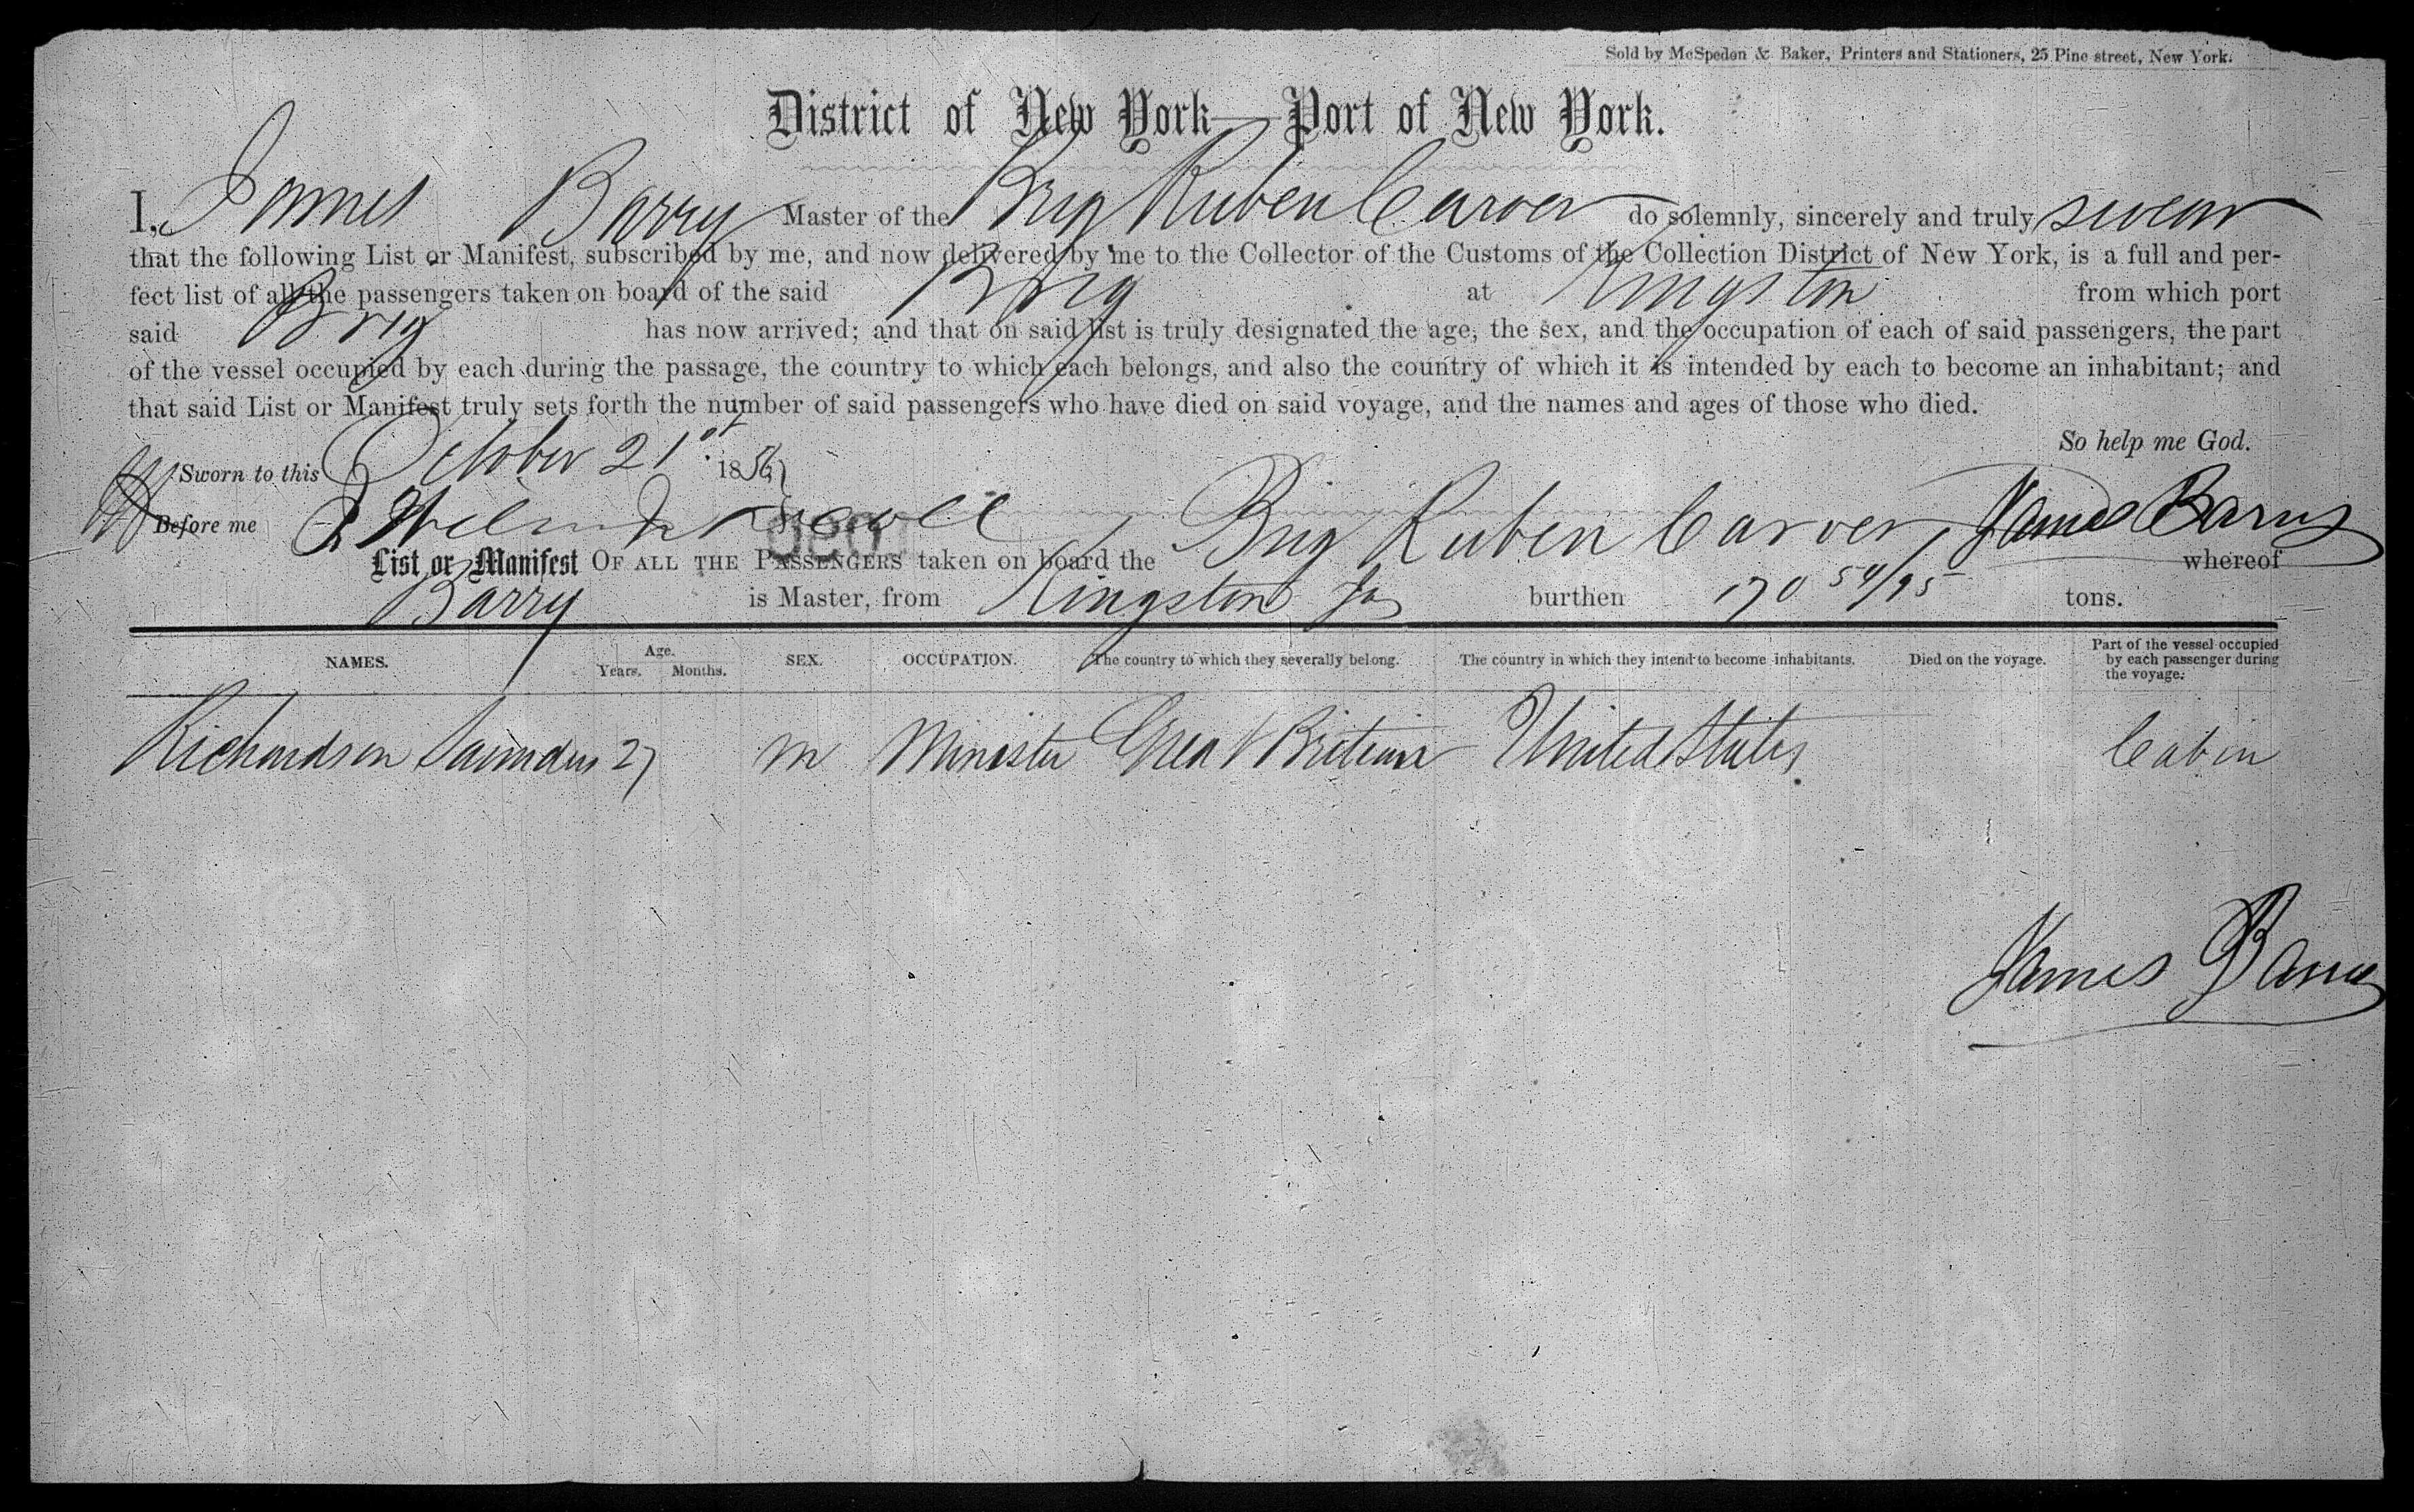 Sold by McSpedon & Baker, Printers and Stationers, 25 Pine street, New York.
District of New York—Port of New York.
I, James Barry Master of the Brig Ruben Carver do solemnly, sincerely and truly swear
that the following List or Manifest, subscribed by me, and now delivered by me to the Collector of the Customs of the Collection District of New York, is a full and per-
fect list of all the passengers taken on board of the said Brig at Kingston from which port
said Brig has now arrived; and that on said list is truly designated the age, the sex, and the occupation of each of said passengers, the part
of the vessel occupied by each during the passage, the country to which each belongs, and also the country of which it is intended by each to become an inhabitant; and
that said List or Manifest truly sets forth the number of said passengers who have died on said voyage, and the names and ages of those who died.
So help me God.
Sworn to this October 21st 185
Before me James Barry
List or Manifest OF ALL THE PASSENGERS taken on board the Brig Ruben Carver whereof
Barry is Master, from Kingston Ja burthen 170 54/95 tons.
NAMES. Age. Years. Months. SEX. OCCUPATION. The country to which they severally belong. The country in which they intend to become inhabitants. Died on the voyage. Part of the vessel occupied by each passenger during the voyage.
Richardson Saunders 27 m Minister Great Britain United States Cabin
James Barry